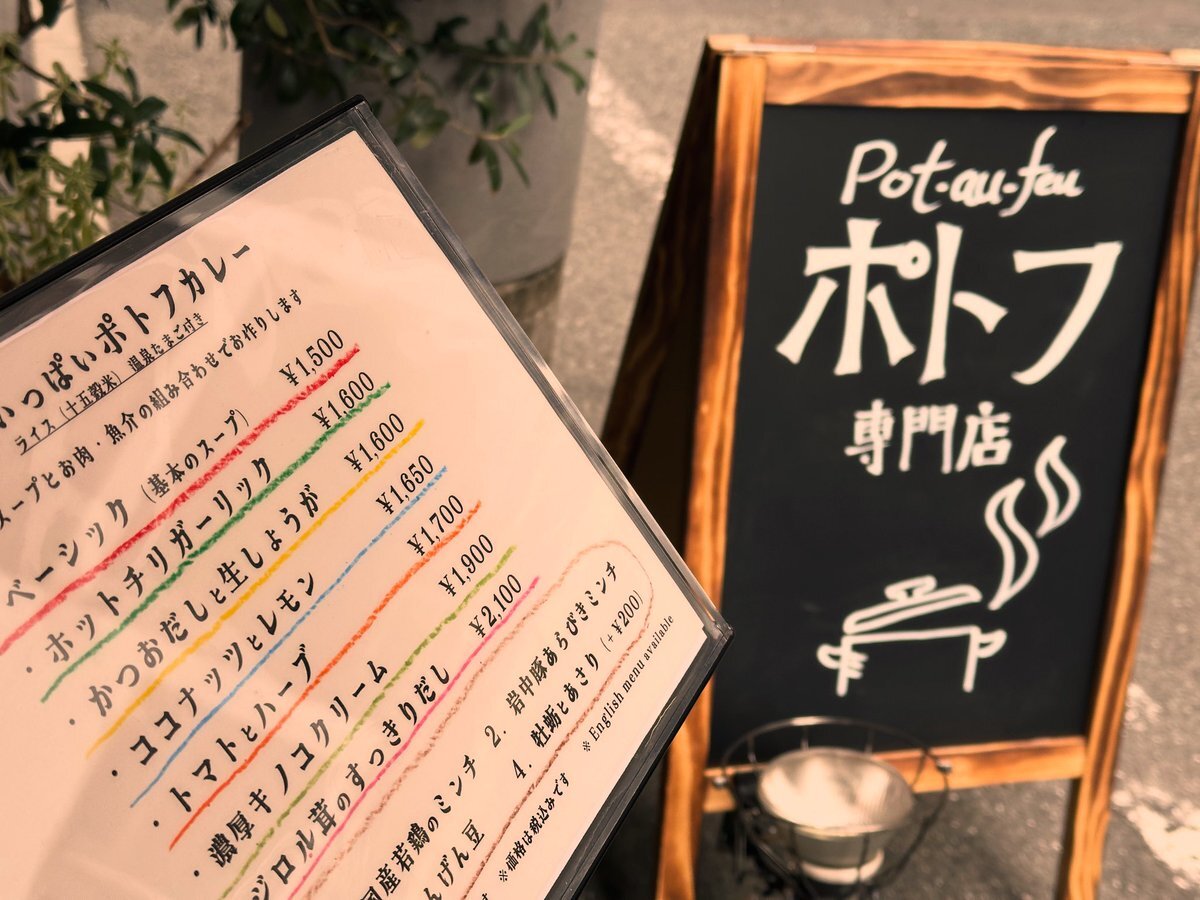 いっぱいポトフカレー
ライス（十五穀米） 温泉たまご付き
スープとお肉・魚介の組み合わせでお作りします
ベーシック（基本のスープ） ¥1,500
・ホットチリガーリック ¥1,600
・かつおだしと生しょうが ¥1,600
・ココナッツとレモン ¥1,650
・トマトとハーブ ¥1,700
・濃厚キノコクリーム ¥1,900
ジロル茸のすっきりだし ¥2,100
国産若鶏のミンチ 2. 岩中豚あらびきミンチ
んげん豆 4. 牡蛎とあさり（+¥200）
※価格は税込みです ※English menu available
Pot-au-feu
ポトフ
専門店